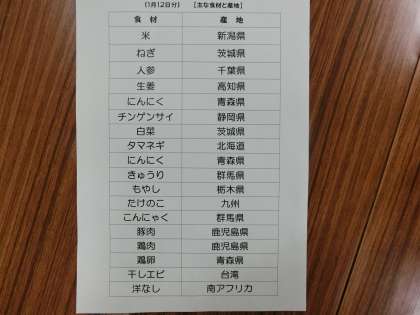 (1月12日分) [主な食材と産地]
食 材 産 地
米 新潟県
ねぎ 茨城県
人参 千葉県
生姜 高知県
にんにく 青森県
チンゲンサイ 静岡県
白菜 茨城県
タマネギ 北海道
にんにく 青森県
きゅうり 群馬県
もやし 栃木県
たけのこ 九州
こんにゃく 群馬県
豚肉 鹿児島県
鶏肉 鹿児島県
鶏卵 青森県
干しエビ 台湾
洋なし 南アフリカ